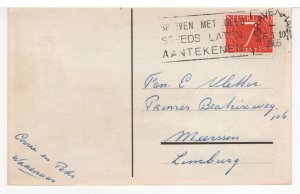 STEEDS LATEN
AANTEKENEN
Fam. C. Vletter
Prinses Beatrixweg,
106
Meerssen
Limburg
Corrie en
Wassenaar